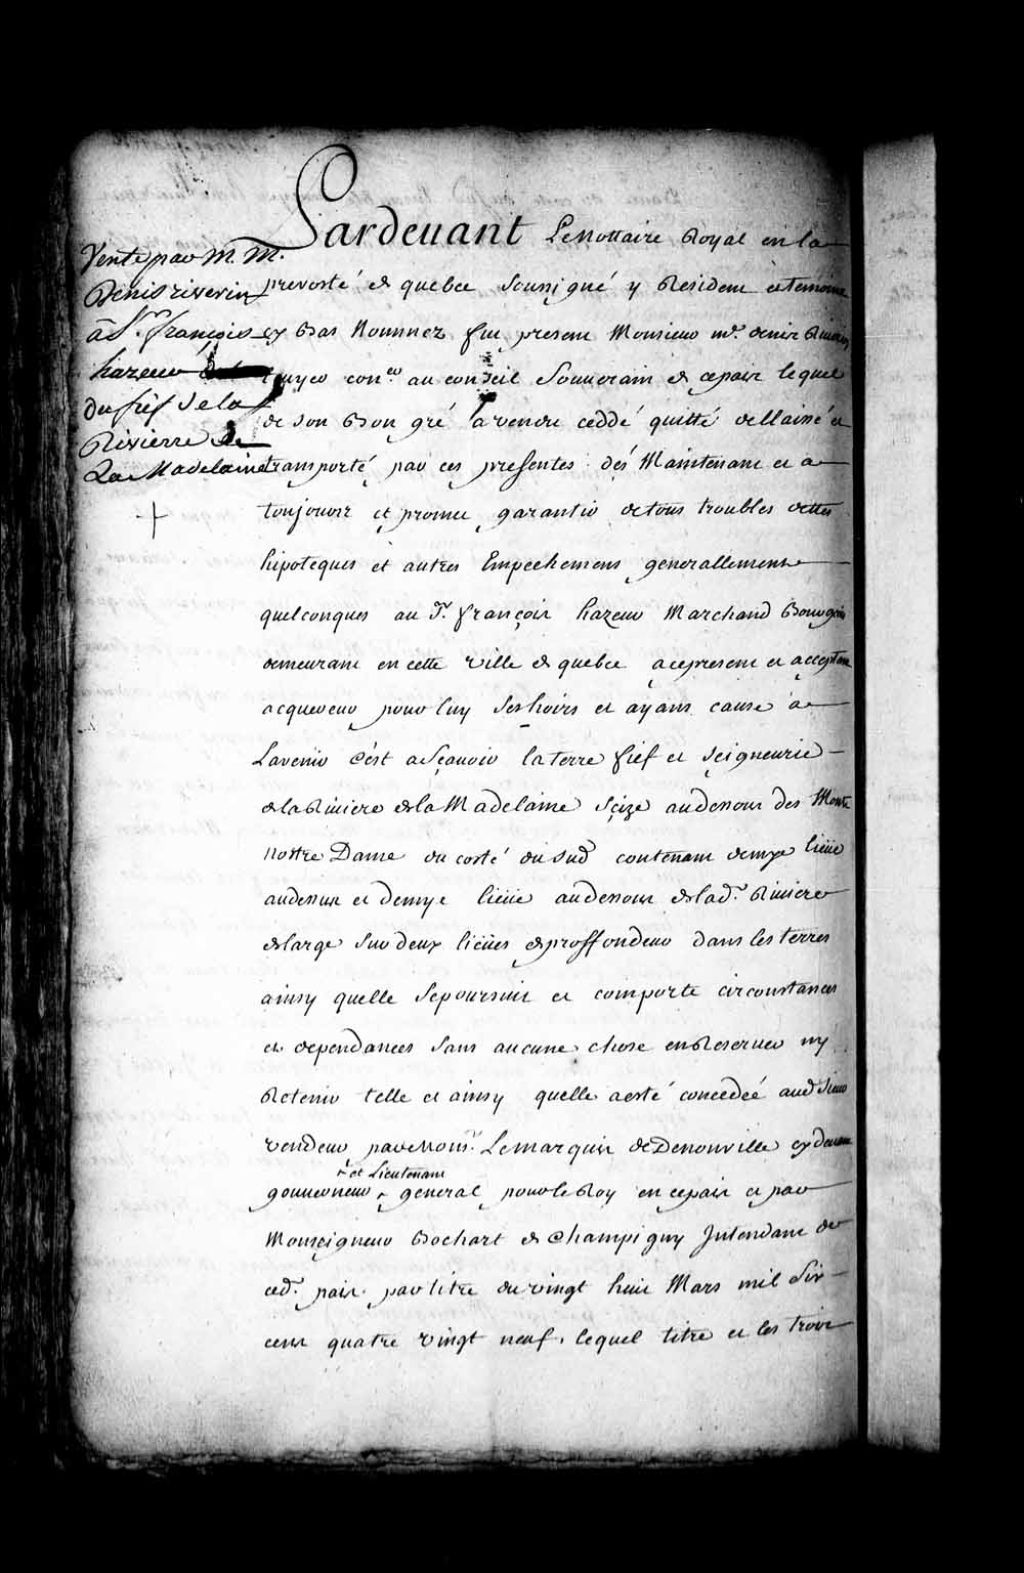 Vente par M. M.
Denis riverin
à Sr. françois
hazeur
du fief de la
Rivierre de
La Madelaine
Pardevant Le Nottaire Royal en la
prevosté de quebec soussigné y Resident et temoins
cy Bas Nommez fut present Monsieur mr. denis Riverin
Escuyer conler au conseil Souverain de ce païs lequel
de son Bon gré a vendu ceddé quitté dellaissé et
transporté par ces presentes dés Maintenant et a
toujours et promet garantir de tous troubles dettes
hipoteques et autres Empechemens generallement
quelconques au Sr. françois hazeur Marchand Bourgeois
demeurant en cette ville de quebec a ce present et acceptant
acquereur pour luy ses hoirs et ayans cause a
L'avenir c'est a sçavoir la terre fief et seigneurie
de la Riviere de la Madelaine size au dessous des Monts
Nostre Dame du costé du sud contenant demye lieüe
au dessus et demye lieüe au dessous de lad. Riviere
de large sur deux lieües de proffondeur dans les terres
ainsy quelle se poursuit et comporte circonstances
et dependances sans aucune chose en Reserver ny
Retenir telle et ainsy quelle a esté concedéé aud Sieur
vendeur par Monsr. Le marquis de Denonville cy devant
et Lieutenant
gouverneur general pour le Roy en ce païs et par
Monseigneur Bochart de Champigny Intendant de
ced. païs par titre du vingt huit Mars mil six
cens quatre vingt neuf, lequel titre et les trois